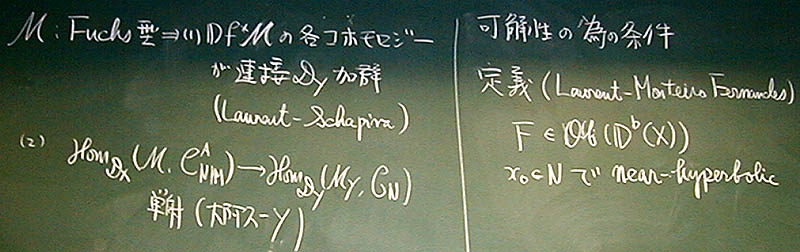 M : Fuchs 型 ⇒ (1) Df*M の各コホモロジー
が連接 D_Y 加群
(Laurent-Schapira)
(2) Hom_{D_X}(M, C^A_{N|M}) → Hom_{D_Y}(M_Y, C_N)
単射 (大阿久-Y)
可解性の為の条件
定義 (Laurent-Monteiro Fernandes)
F ∈ Ob(D^b(X))
x_0 ∈ N で near-hyperbolic